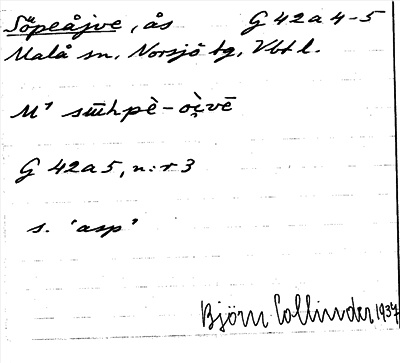 Söpeåjve, ås G 42 a 4-5
Malå sn, Norsjö tg, Vbtl.
M' sūhpè-oi̯vē
G 42a5, n:r 3
s. 'asp'
Björn Collinder 1937